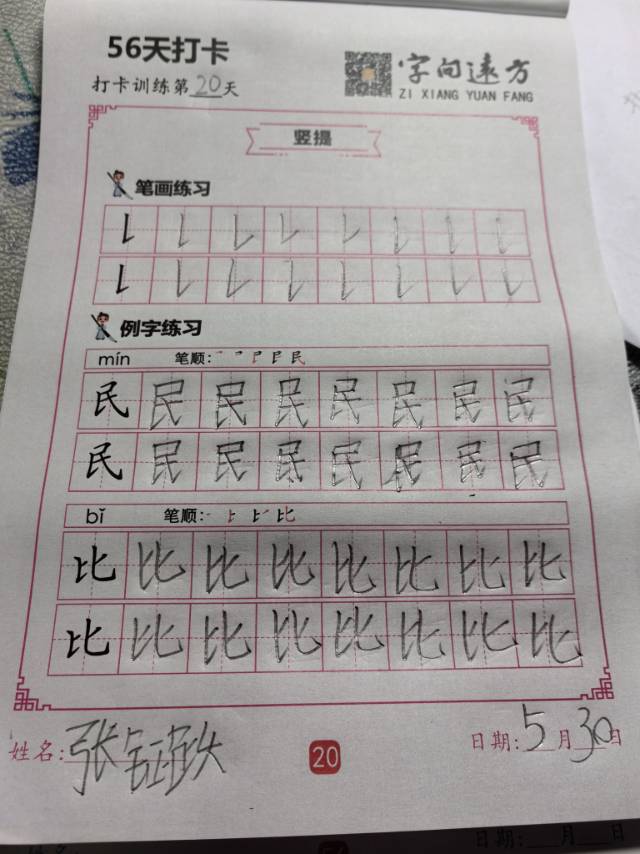 56天打卡
打卡训练第20天
字向远方
ZI XIANG YUAN FANG
竖提
笔画练习
例字练习
mín 笔顺:
民民民民民民民民
民民民民民民民民
bǐ 笔顺:
比比比比比比比比
比比比比比比比比
姓名:张
日期:5月30日
20
日期: 月 日